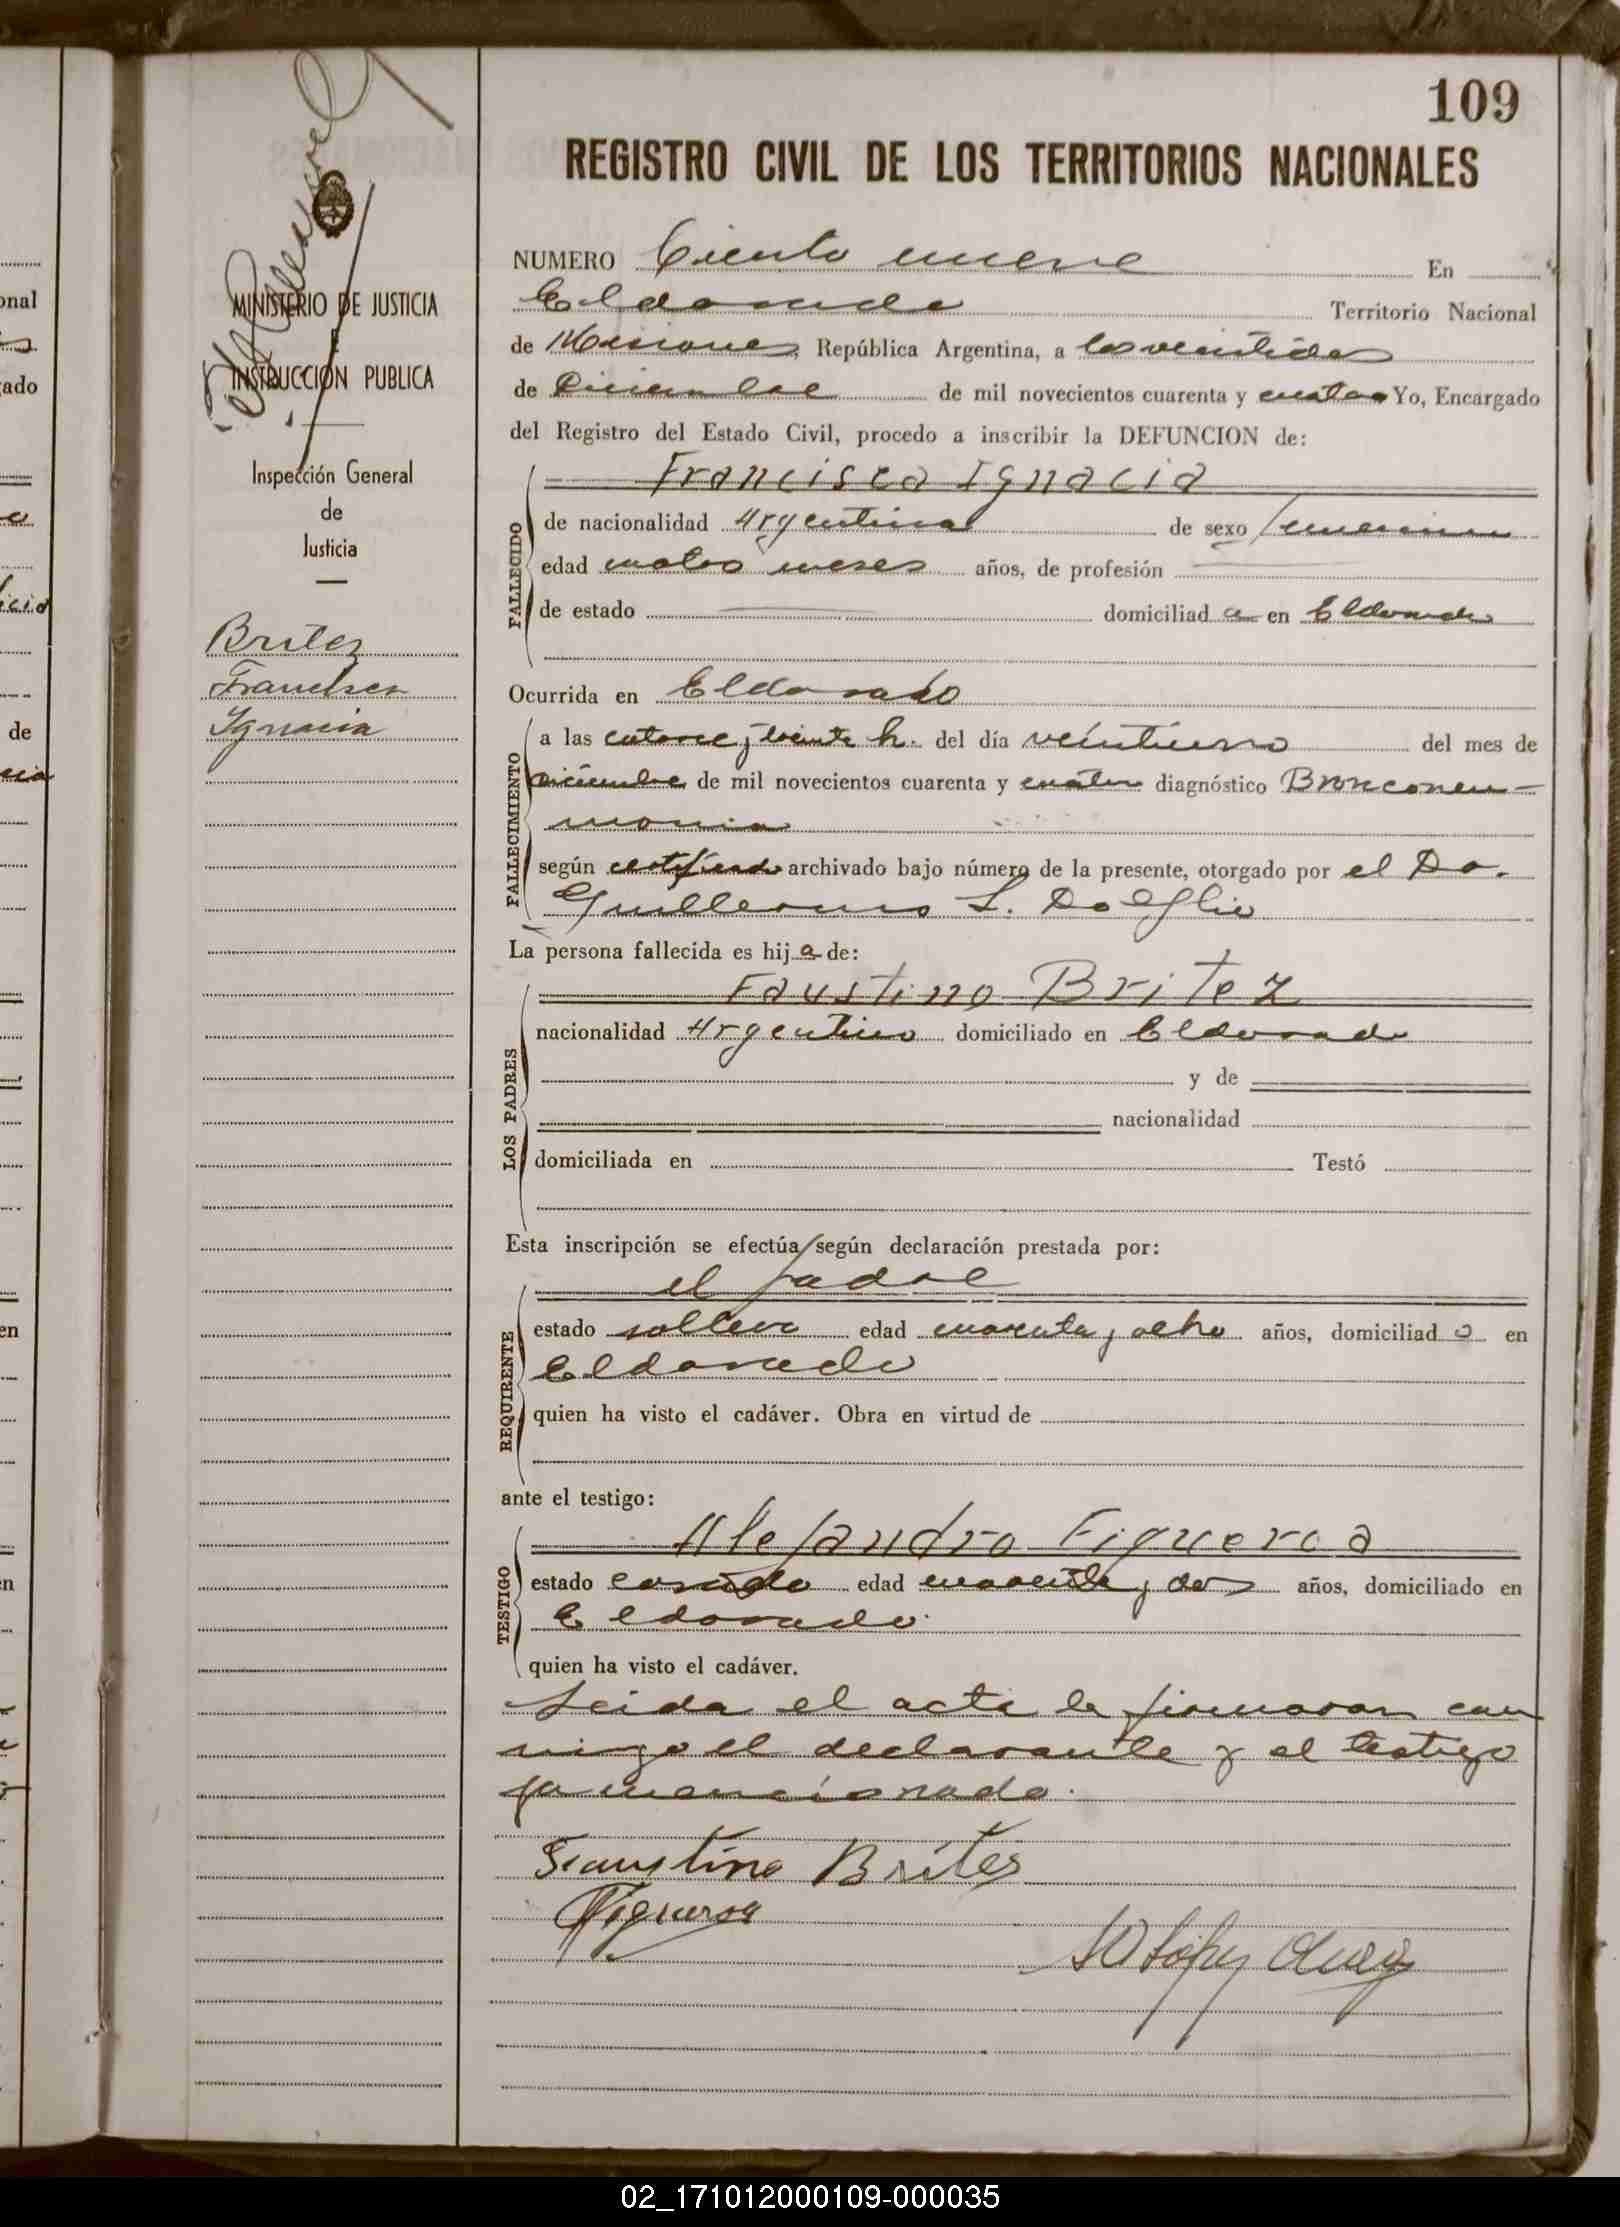 109
REGISTRO CIVIL DE LOS TERRITORIOS NACIONALES
MINISTERIO DE JUSTICIA
E
INSTRUCCIÓN PUBLICA
Inspección General
de
Justicia
Britez
Francisca
Ignacia
NUMERO Ciento nueve En
Eldorado Territorio Nacional
de Misiones, República Argentina, a los veintidos
de Diciembre de mil novecientos cuarenta y cuatro Yo, Encargado
del Registro del Estado Civil, procedo a inscribir la DEFUNCION de:
FALLECIDO
Francisca Ignacia
de nacionalidad Argentina de sexo femenino
edad cuatro meses años, de profesión
de estado domiciliad a en Eldorado
Ocurrida en Eldorado
FALLECIMIENTO
a las catorce y treinta h. del día veintiuno del mes de
diciembre de mil novecientos cuarenta y cuatro diagnóstico Bronconeu-
monia
según certificado archivado bajo número de la presente, otorgado por el Dr.
Guillermo L.
La persona fallecida es hij a de:
LOS PADRES
Faustino Britez
nacionalidad Argentino domiciliado en Eldorado
y de
nacionalidad
domiciliada en Testó
Esta inscripción se efectúa según declaración prestada por:
REQUIRENTE
el padre
estado soltero edad cuarenta y ocho años, domiciliad o en
Eldorado
quien ha visto el cadáver. Obra en virtud de
ante el testigo:
TESTIGO
Alejandro Figueroa
estado casado edad cuarenta y dos años, domiciliado en
Eldorado.
quien ha visto el cadáver.
Leida el acta la firmaron con
migo el declarante y el testigo
ya mencionado.
Faustino Brites
Figueroa
02_171012000109-000035